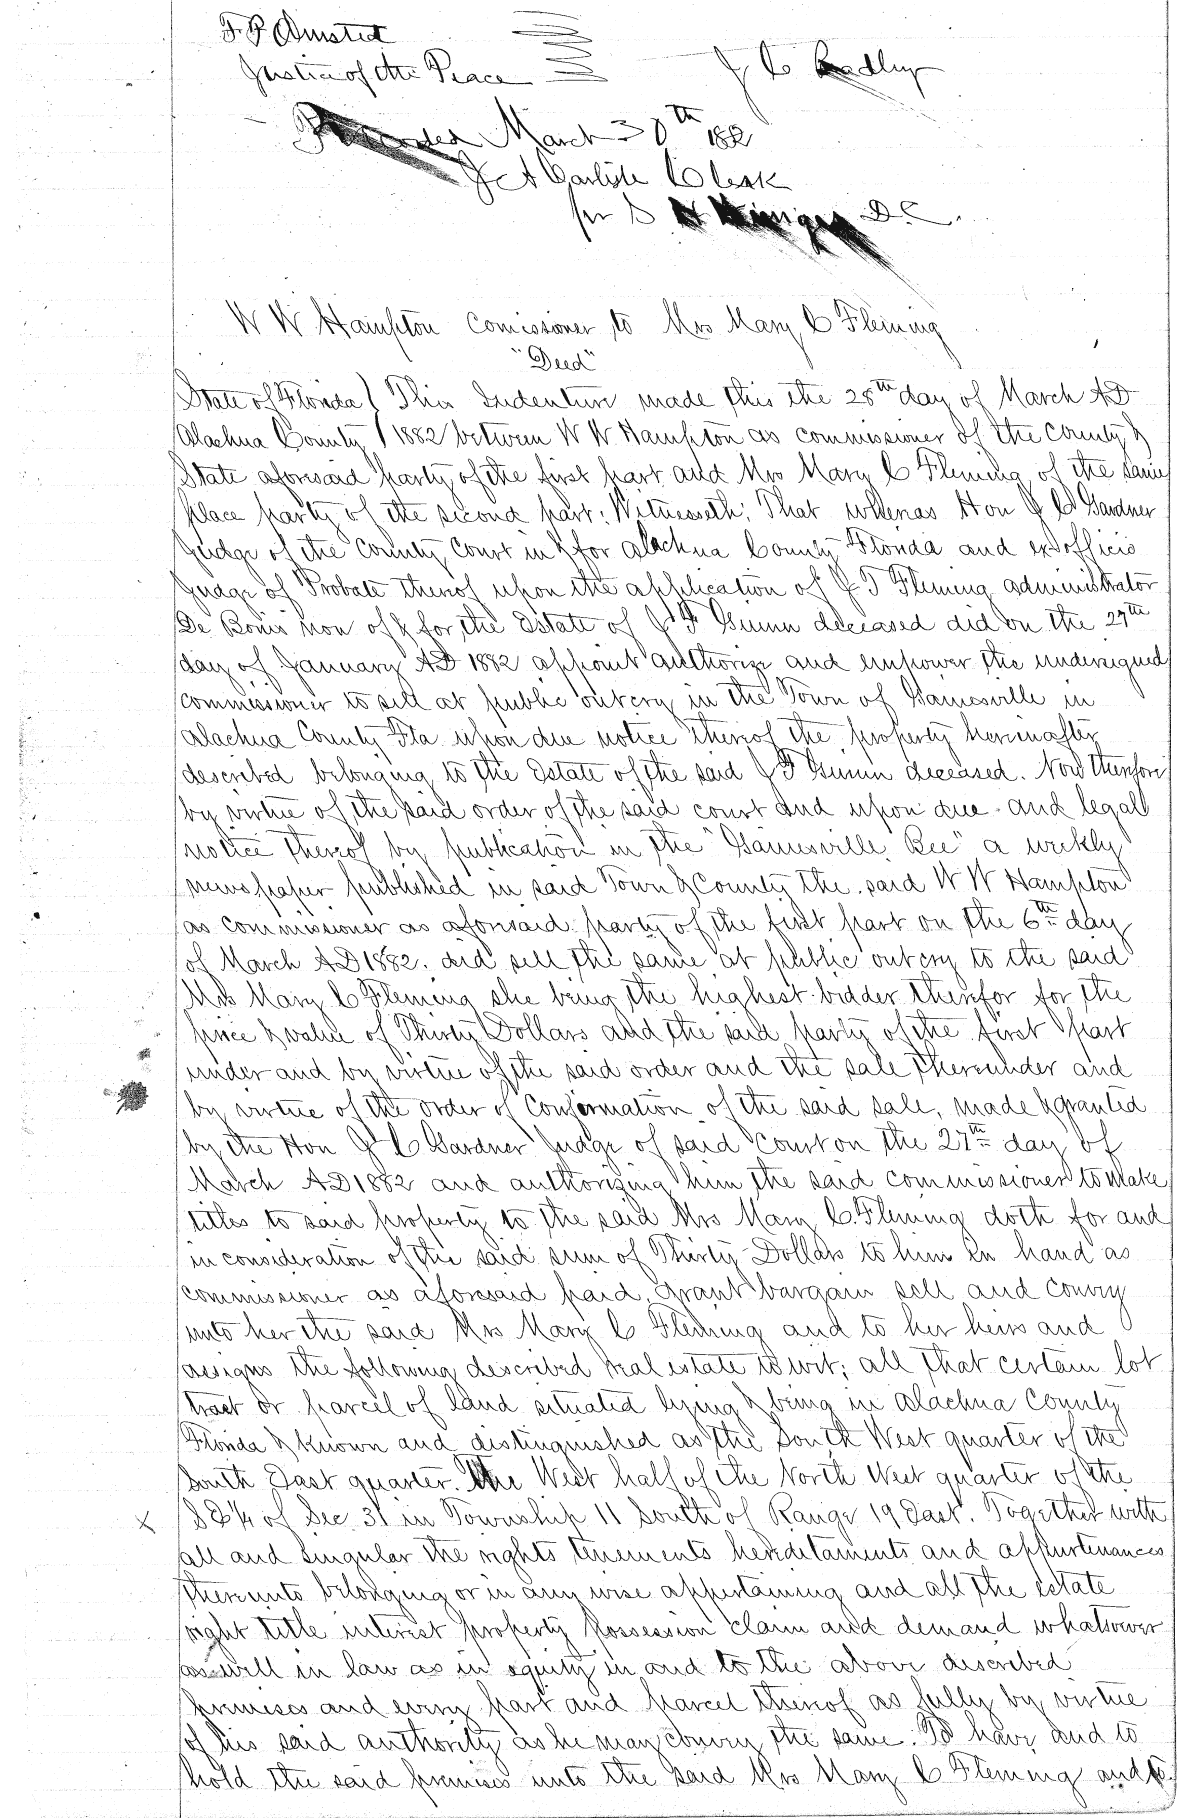 F. P. Olmsted
Justice of the Peace J C Bradley
Recorded March 30th 1882
J A Carlisle Clerk
per S D.C.
W W Hampton Comissioner to Mrs Mary C Fleming
"Deed"
State of Florida } This Indenture made this the 28th day of March AD
Alachua County } 1882 between W W Hampton as commissioner of the County &
State aforesaid party of the first part and Mrs Mary C Fleming of the same
place party of the second part: Witnesseth; That whereas Hon J C Gardner
Judge of the County Court in & for Alachua County Florida and ex officio
Judge of Probate thereof upon the application of J T Fleming administrator
De Bonis non of & for the Estate of J F Guinn deceased did on the 27th
day of January AD 1882 appoint authorize and empower the undersigned
commissioner to sell at public outcry in the Town of Gainesville in
Alachua County Fla upon due notice thereof the property hereinafter
described belonging to the Estate of the said J F Guinn deceased. Now therefore
by virtue of the said order of the said court and upon due and legal
notice thereof by publication in the "Gainesville Bee" a weekly
newspaper published in said Town & County the said W W Hampton
as commissioner as aforesaid party of the first part on the 6th day
of March AD 1882. did sell the same at public outcry to the said
Mrs Mary C Fleming she being the highest bidder therefor for the
price & value of Thirty Dollars and the said party of the first part
under and by virtue of the said order and the sale thereunder and
by virtue of the order of Confermation of the said sale, made & granted
by the Hon J C Gardner Judge of said Court on the 27th day of
March AD 1882 and authorizing him the said commissioner to make
titles to said property to the said Mrs Mary C. Fleming doth for and
in consideration of the said sum of Thirty Dollars to him in hand as
commissioner as aforesaid paid, grant bargain sell and convey
unto her the said Mrs Mary C Fleming and to her heirs and
assigns the following described real estate to wit; all that certain lot
tract or parcel of land situated lying & being in Alachua County
Florida & known and distinguished as the South West quarter of the
South East quarter. The West half of the North West quarter of the
S E 1/4 of Sec 31 in Township 11 South of Range 19 East. Together with
all and singular the rights tenements hereditaments and appurtenances
thereunto belonging or in any wise appertaining and all the estate
right title interest property possession claim and demand whatsoever
as well in law as in equity in and to the above described
premises and every part and parcel thereof as fully by virtue
of his said authority as he may convey the same. To have and to
hold the said premises unto the said Mrs Mary C Fleming and to